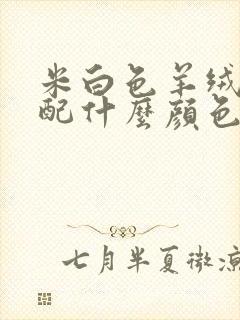 米白色羊绒
配什麼顏色
七月半夏微凉